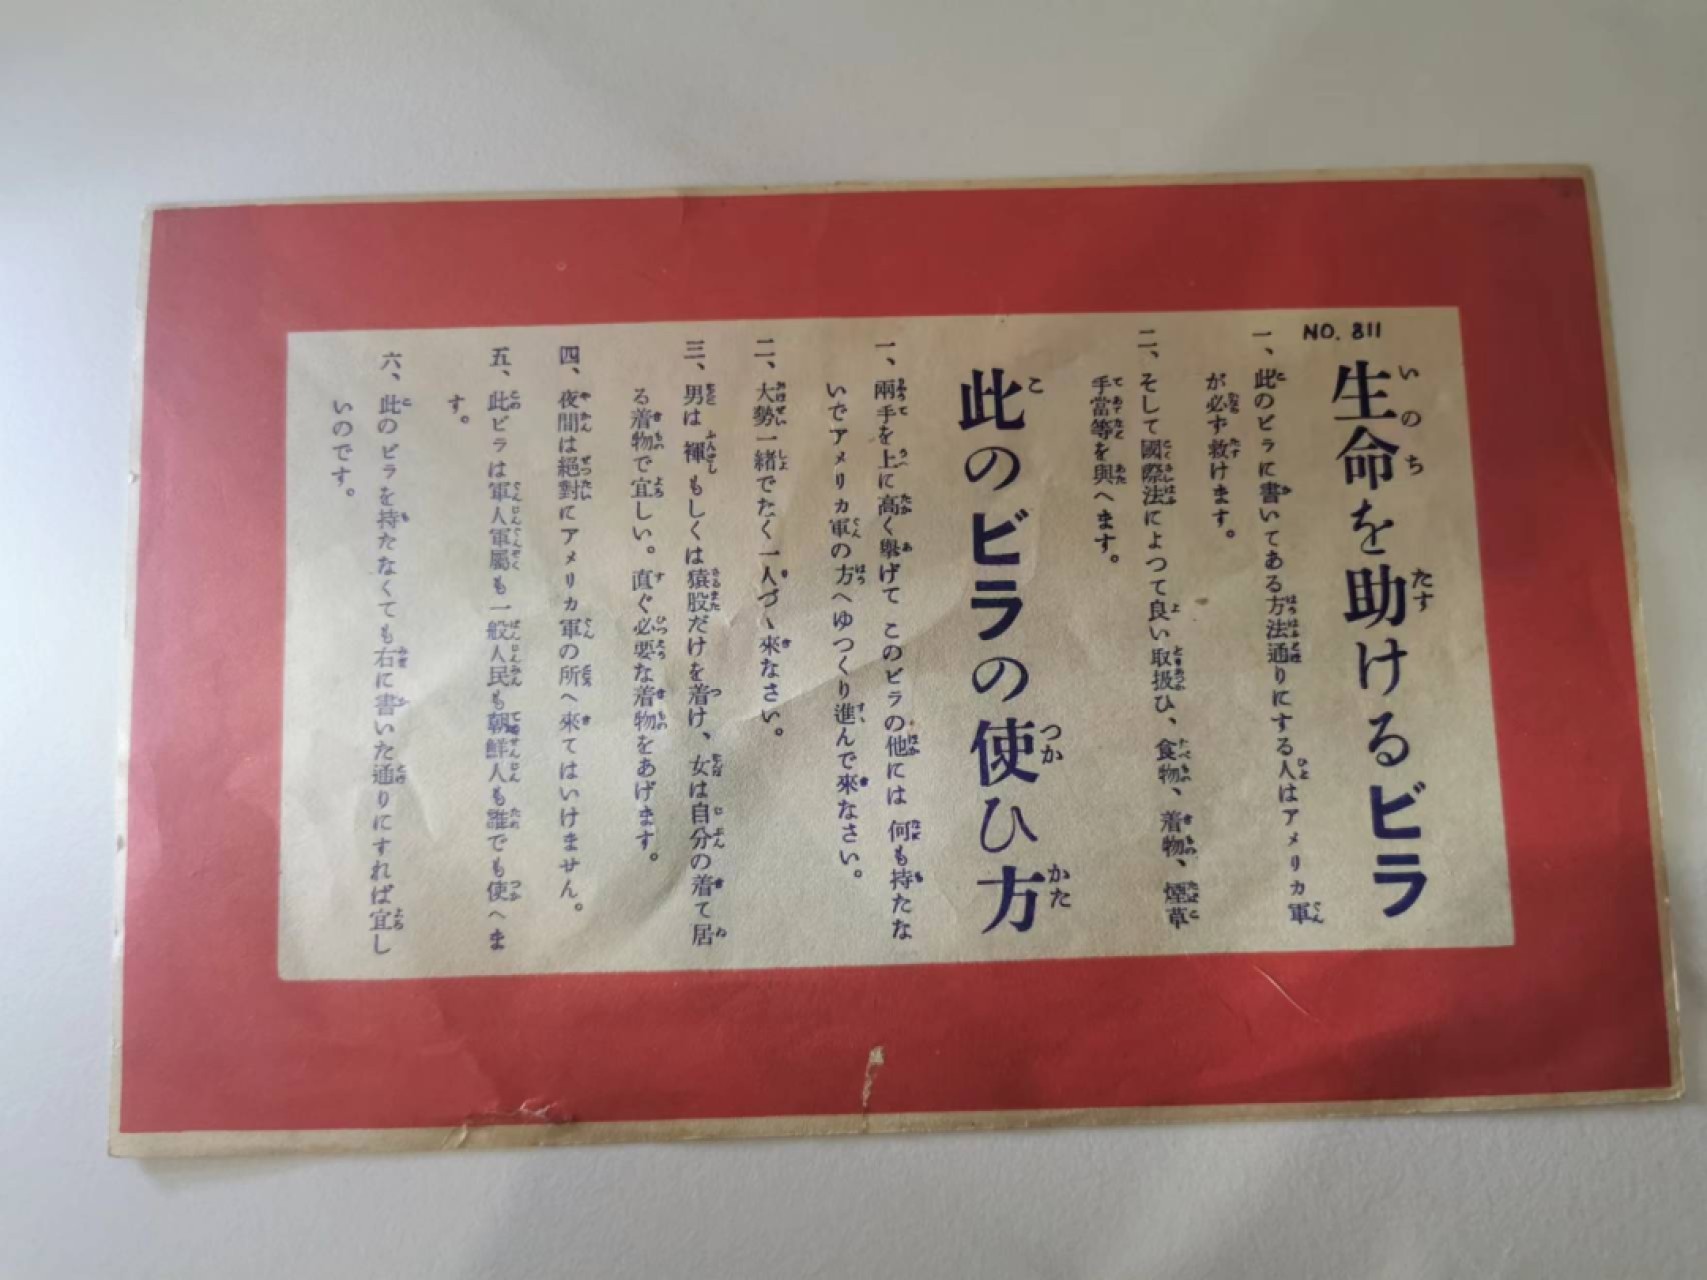 NO. 811
生命を助けるビラ
一、此のビラに書いてある方法通りにする人はアメリカ軍
が必ず救けます。
二、そして國際法によつて良い取扱ひ、食物、着物、煙草
手當等を與へます。
此のビラの使ひ方
一、兩手を上に高く擧げて このビラの他には 何も持たな
いでアメリカ軍の方へゆつくり進んで來なさい。
二、大勢一緒でたく一人づゝ來なさい。
三、男は 褌 もしくは猿股だけを着け、女は自分の着て居
る着物で宜しい。直ぐ必要な着物をあげます。
四、夜間は絕對にアメリカ軍の所へ來てはいけません。
五、此ビラは軍人軍屬も一般人民も朝鮮人も誰でも使へま
す。
六、此のビラを持たなくても右に書いた通りにすれば宜し
いのです。